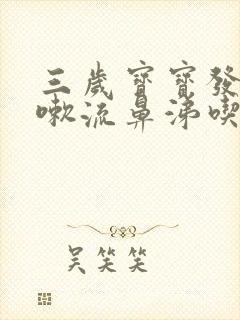 三歲寶寶發
嗽流鼻涕喫
吳笑笑